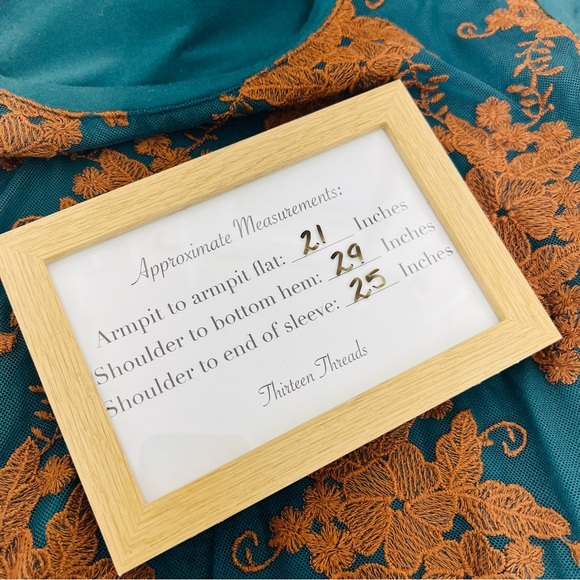 Approximate Measurements:
Armpit to armpit flat: 21 Inches
Shoulder to bottom hem: 29 Inches
Shoulder to end of sleeve: 25 Inches
Thirteen Threads